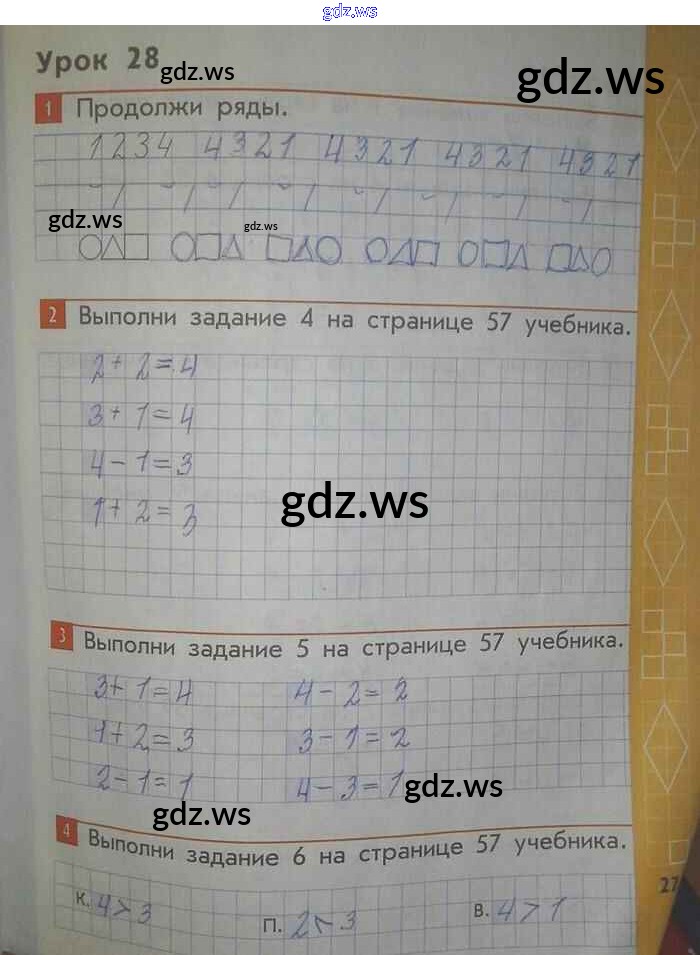 gdz.ws
Урок 28
gdz.ws
gdz.ws
1 Продолжи ряды.
1 2 3 4 4 3 2 1 4 3 2 1 4 3 2 1 4 3 2 1
gdz.ws
gdz.ws
2 Выполни задание 4 на странице 57 учебника.
2 + 2 = 4
3 + 1 = 4
4 - 1 = 3
1 + 2 = 3
gdz.ws
3 Выполни задание 5 на странице 57 учебника.
3 + 1 = 4 4 - 2 = 2
1 + 2 = 3 3 - 1 = 2
2 - 1 = 1 4 - 3 = 1
gdz.ws
gdz.ws
4 Выполни задание 6 на странице 57 учебника.
К. 4 > 3 П. 2 < 3 В. 4 > 1
27